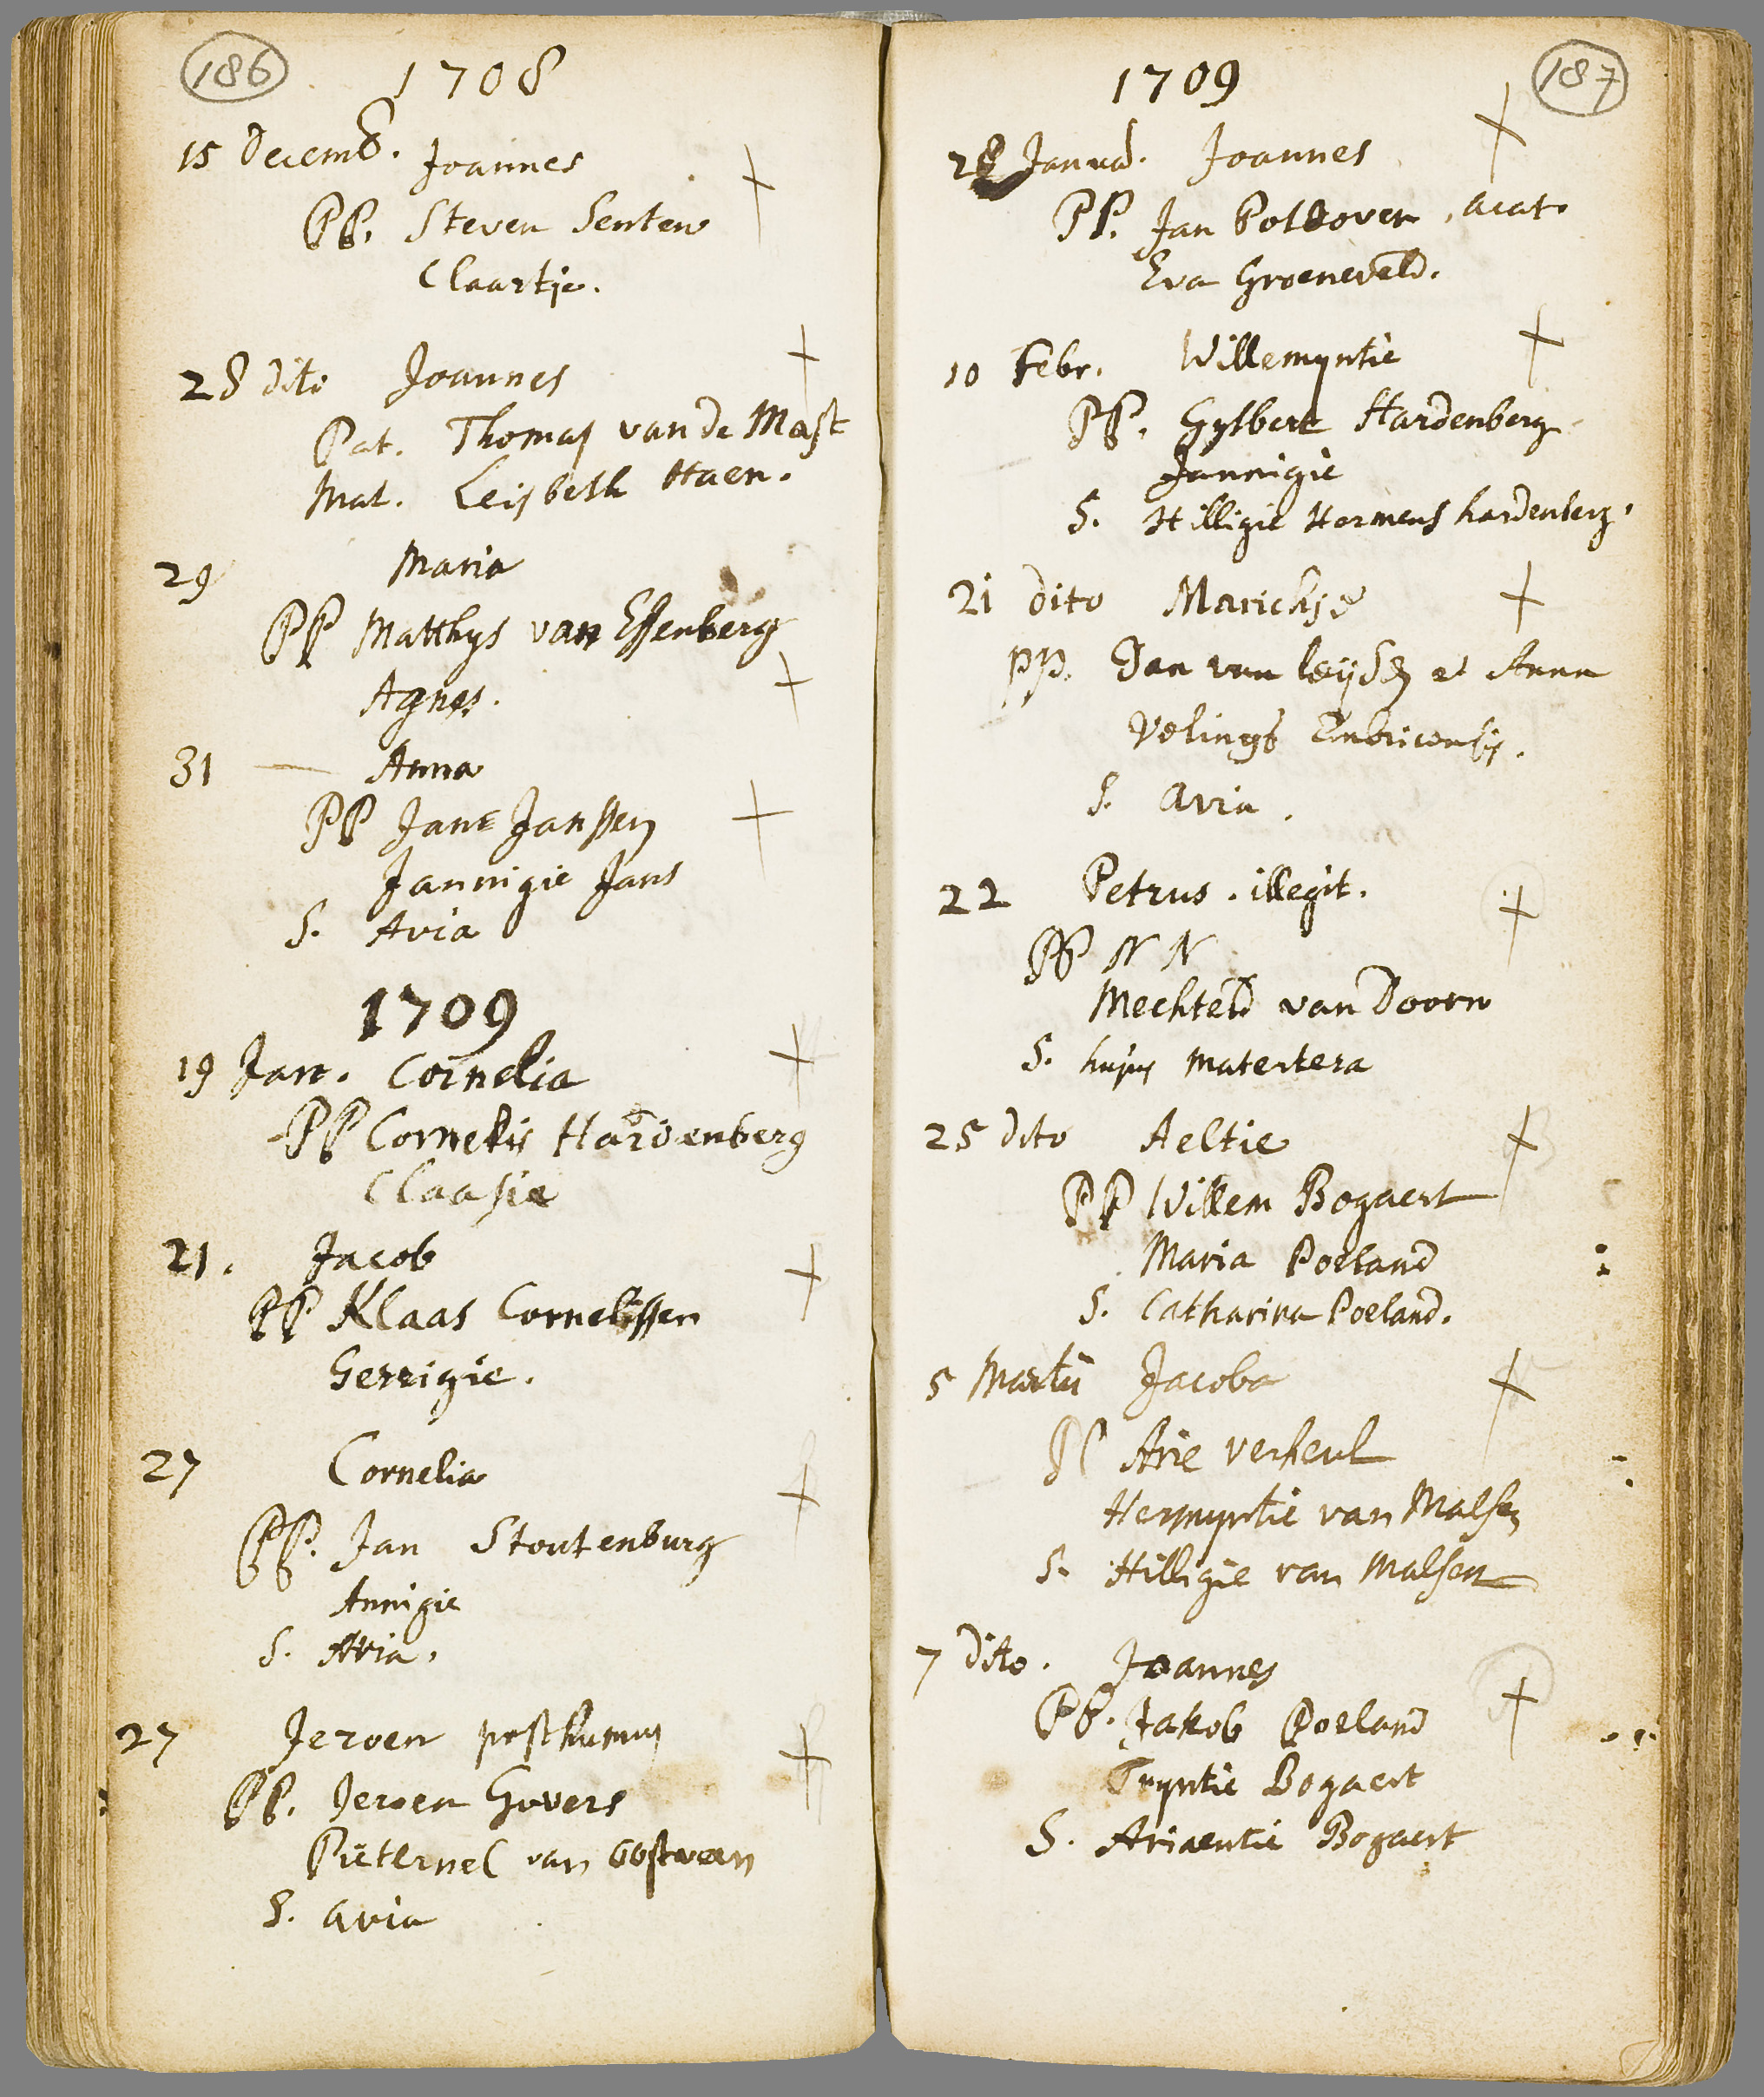 186
1708
15 Decemb. Joannes
PP. Steven Senten
Claartje.
28 dito Joannes
Pat. Thomas van de Mast
Mat. Leijsbeth Haen.
29 Maria
PP Matthys van Essenberg
Agnes.
31 — Anna
PP Jane Janssen
Jannigie Jans
S. Avia
1709
19 Jan. Cornelia
PP Cornelis Hardenberg
Claasie
21. Jacob
PP Klaas Cornelissen
Gerrigie.
27 Cornelia
PP. Jan Stoutenburg
Annigie
S. Avia.
27 Jeroen posthumus
PP. Jeroen Govers
Pieternel van Oostveen
S. avia
187
1709
28 Januar. Joannes
PP. Jan Polhoven, acat.
Eva Groeneveld.
10 Febr. Willemyntie
PP. Gysbert Hardenberg
Jannigie
S. Hilligie Hermens hardenberg.
21 dito Marichje
pp. Jan van leijden et Anna
Velings Embricensis.
S. avia.
22 Petrus. illegit.
PP N N
Mechteld van Doorn
S. hujus matertera
25 dito Aeltie
PP Willem Bogaert
Maria Poeland
S. Catharina Poeland.
5 Martii Jacoba
PP Arie verheul
Hermyntie van Malsen
S. Hilligie van Malsen
7 dito. Joannes
PP. Jakob Poeland
Tryntie Bogaert
S. Ariaentie Bogaert